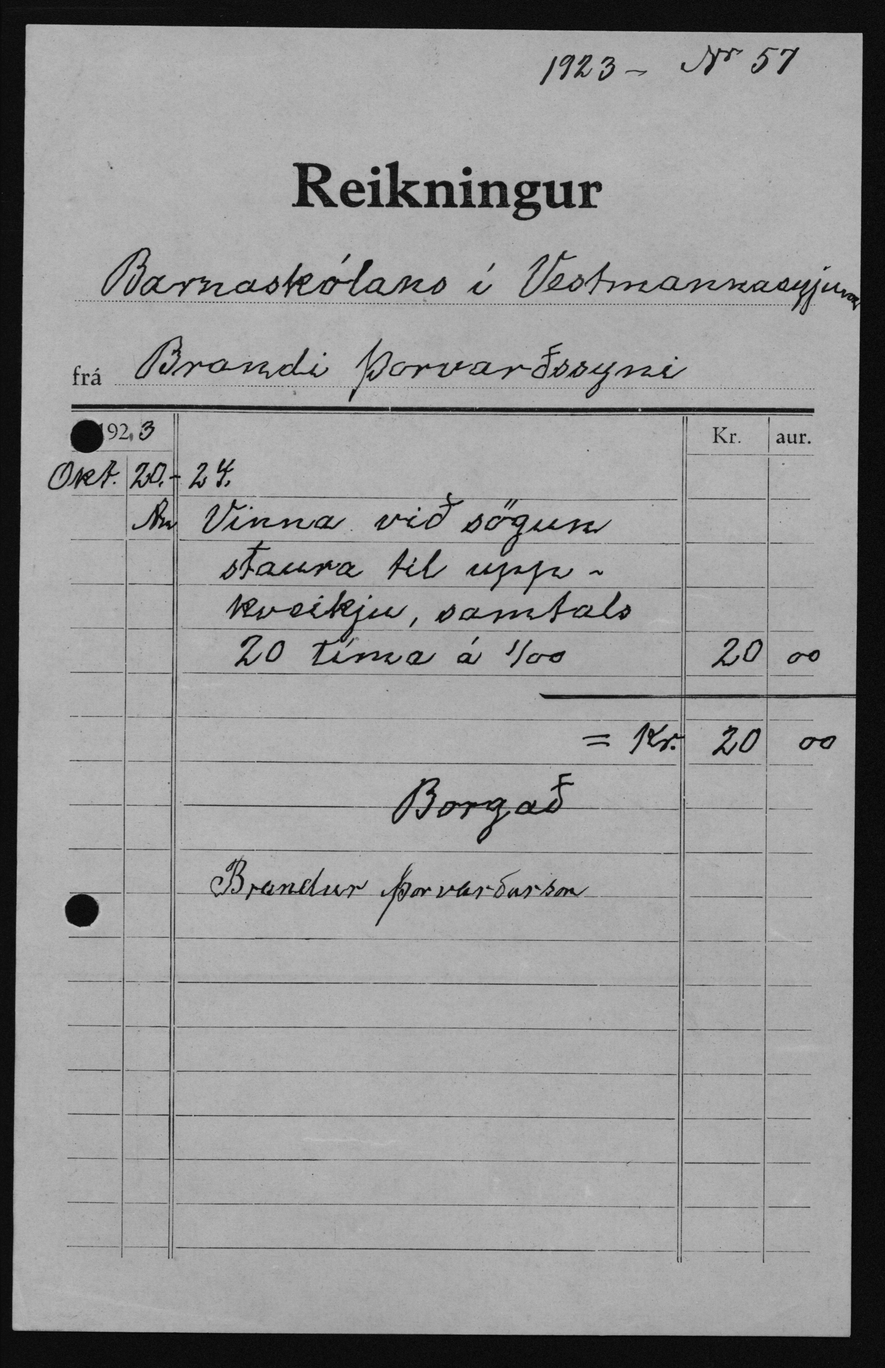 1923 - Nr 57
Reikningur
Barnaskólans í Vestmannaeyjum
frá Brandi Þorvarðssyni
1923 Kr. aur.
Okt. 20.- 24.
Vinna við sögun
staura til upp-
kveikju, samtals
20 tíma á 1/00 20 00
= Kr. 20 00
Borgað
Brandur Þorvarðarson